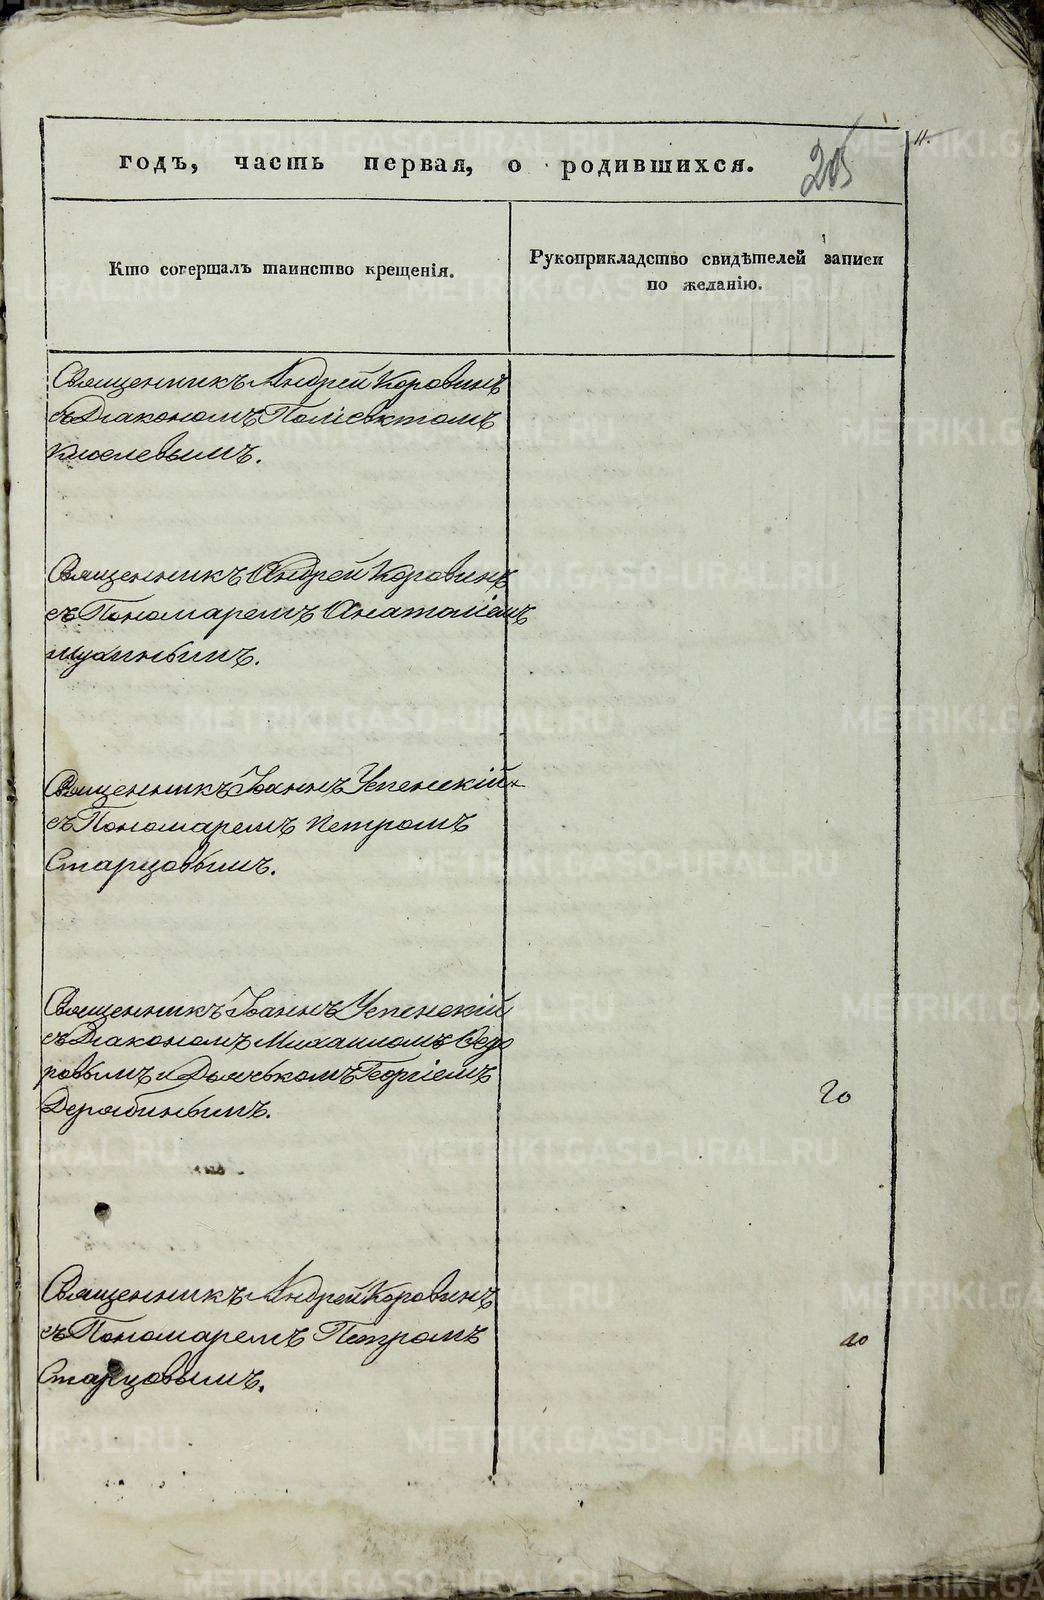 годъ, часть первая, о родившихся.
205
11.
Кто совершалъ таинство крещенія.
Рукоприкладство свидѣтелей записи
по желанію.
Священникъ Андрей Коровинъ
съ Діакономъ Поліевктомъ
Киселевымъ.
Священникъ Андрей Коровинъ
съ Пономаремъ Анатоліемъ
Мухинымъ.
Священникъ Іоаннъ Успенскій
съ Пономаремъ Петромъ
Старцовымъ.
Священникъ Іоаннъ Успенскій
съ Діакономъ Михаиломъ Ѳедо
ровымъ и Дьячькомъ Георгіемъ
Дерябинымъ.
20
Священникъ Андрей Коровинъ
съ Пономаремъ Петромъ
Старцовымъ.
METRIKI.GASO-URAL.RU